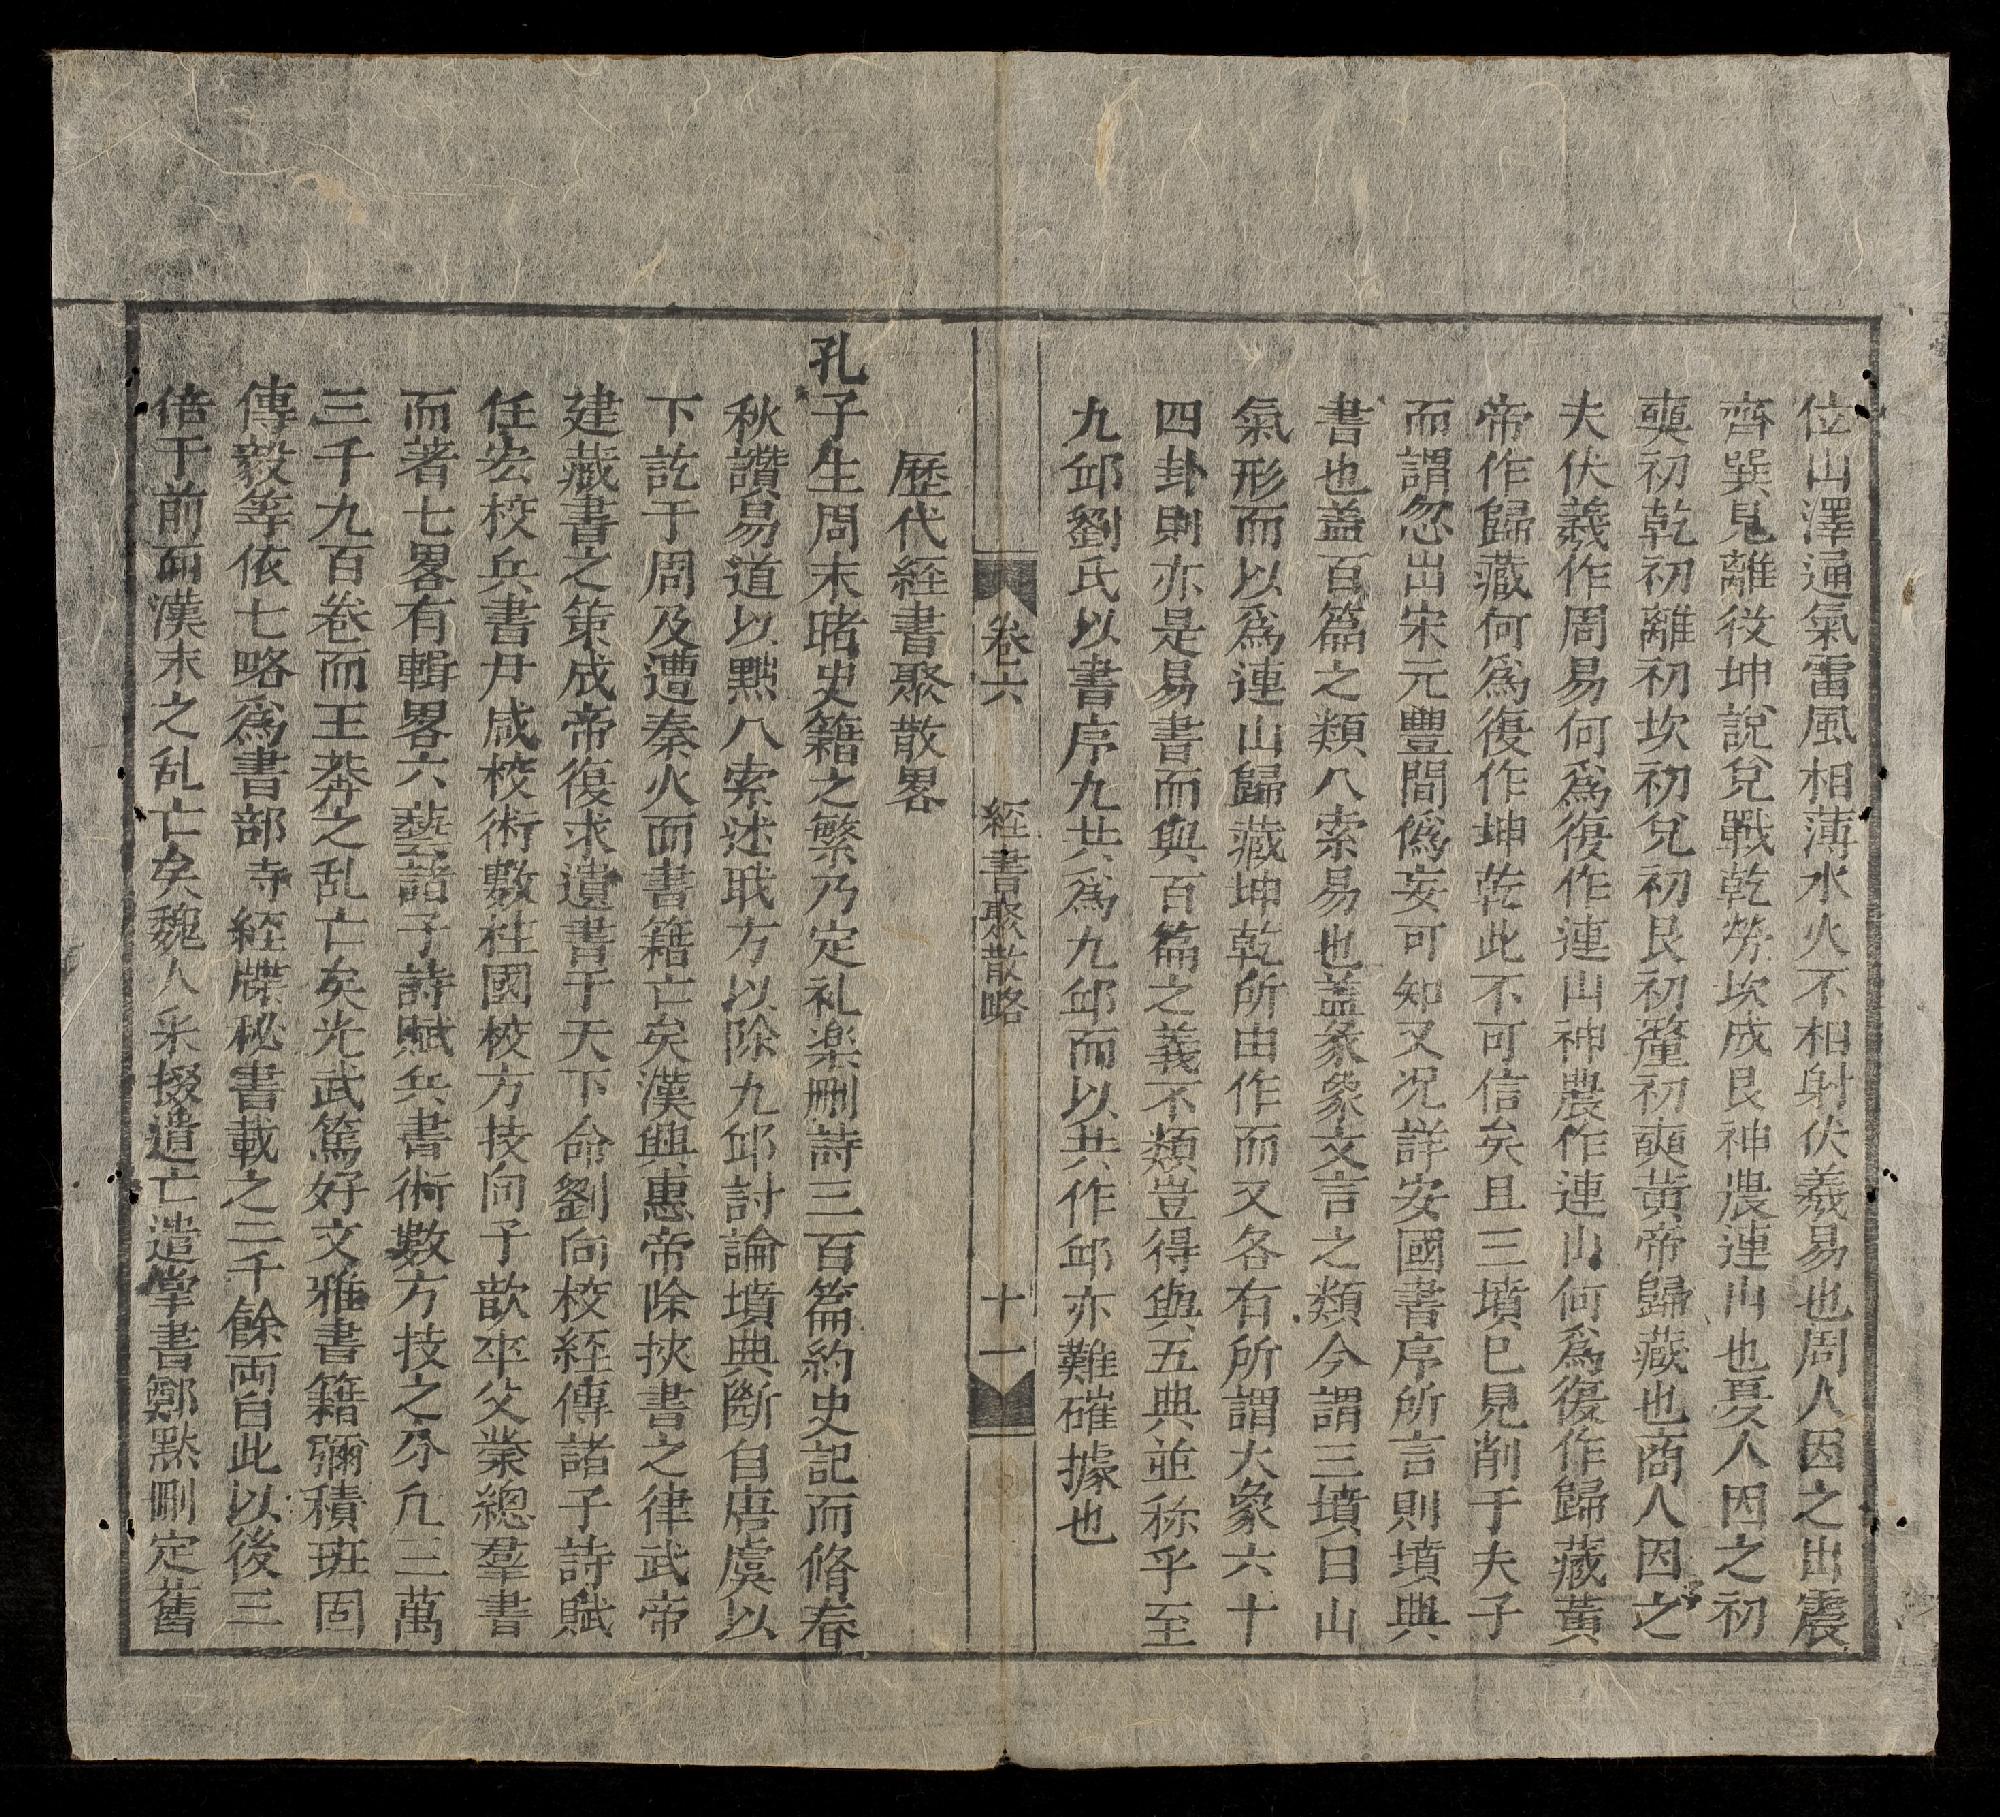 位山澤通氣雷風相薄水火不相射伏羲易也周人因之出震
齊巽見離役坤說兌戰乾勞坎成艮神農連山也憂人因之初
奭初乾初離初坎初兌初艮初釐初奭黃帝歸藏也商人因之
夫伏羲作周易何爲復作連山神農作連山何爲復作歸藏黃
帝作歸藏何爲復作坤乾此不可信矣且三墳已見削于夫子
而謂忽出宋元豐間僞妄可知又況詳安國書序所言則墳典
書也盖百篇之類八索易也盖彖象文言之類今謂三墳曰山
氣形而以爲連山歸藏坤乾所由作而又各有所謂大象六十
四卦則亦是易書而與百篇之義不類豈得與五典並称乎至
九邱劉氏以書序九共爲九邱而以共作邱亦難確據也
卷六 經書聚散略 十一
歷代経書聚散畧
孔子生周末睹史籍之繁乃定礼楽刪詩三百篇約史記而脩春
秋讚易道以黜八索述聀方以除九邱討論墳典斷自唐虞以
下訖于周及遭秦火而書籍亡矣漢興惠帝除挾書之律武帝
建藏書之策成帝復求遺書于天下命劉向校経傳諸子詩賦
任宏校兵書尹咸校術數柱國校方技向子歆卒父業總羣書
而著七畧有輯畧六藝諸子詩賦兵書術數方技之分凢三萬
三千九百卷而王莽之乱亡矣光武篤好文雅書籍彌積班固
傳毅等依七略爲書部寺経牒秘書載之二千餘両自此以後三
倍于前而漢末之乱亡矣魏人采掇遺亡遣掌書鄭黙刪定舊